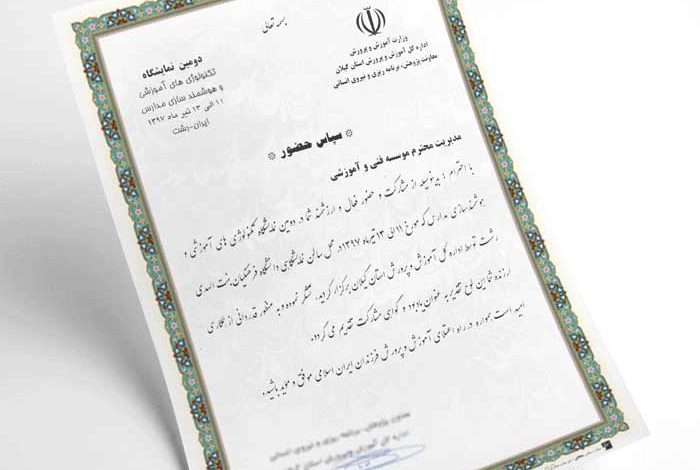 بسمه تعالی
وزارت آموزش و پرورش
اداره کل آموزش و پرورش استان گیلان
معاونت پژوهش، برنامه ریزی و نیروی انسانی
دومین نمایشگاه
تکنولوژی های آموزشی
و هوشمند سازی مدارس
۱۱ الی ۱۳ تیر ماه ۱۳۹۷
ایران-رشت
* سپاس حضور *
مدیریت محترم موسسه فنی و آموزشی
با احترام ؛ بدینوسیله از مشارکت و حضور فعال و ارزشمند شما در دومین نمایشگاه تکنولوژی های آموزشی و
هوشمندسازی مدارس که مورخ ۱۱ الی ۱۳ تیرماه ۱۳۹۷ در محل سالن نمایشگاهی دانشگاه فرهنگیان بنت الهدی
رشت توسط اداره کل آموزش و پرورش استان گیلان برگزار گردید، تشکر نموده و به منظور قدردانی از همکاری
ارزنده شما این لوح تقدیر به عنوان یادبود و گواهی مشارکت تقدیم می گردد.
امید است همواره در راه اعتلای آموزش و پرورش فرزندان ایران اسلامی موفق و موید باشید.
معاون پژوهش، برنامه ریزی و نیروی انسانی
اداره کل آموزش و پرورش استان